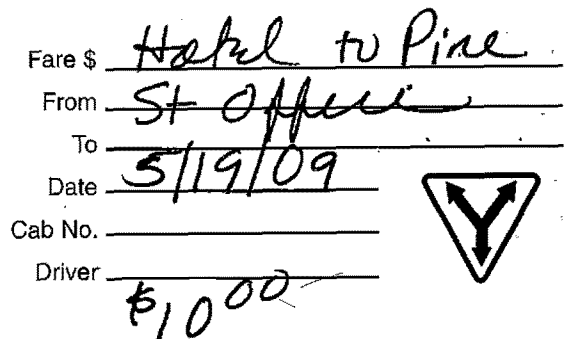 Fare $ Hotel to Pine
From St Office
To
Date 5/19/09
Cab No.
Driver
$10 00